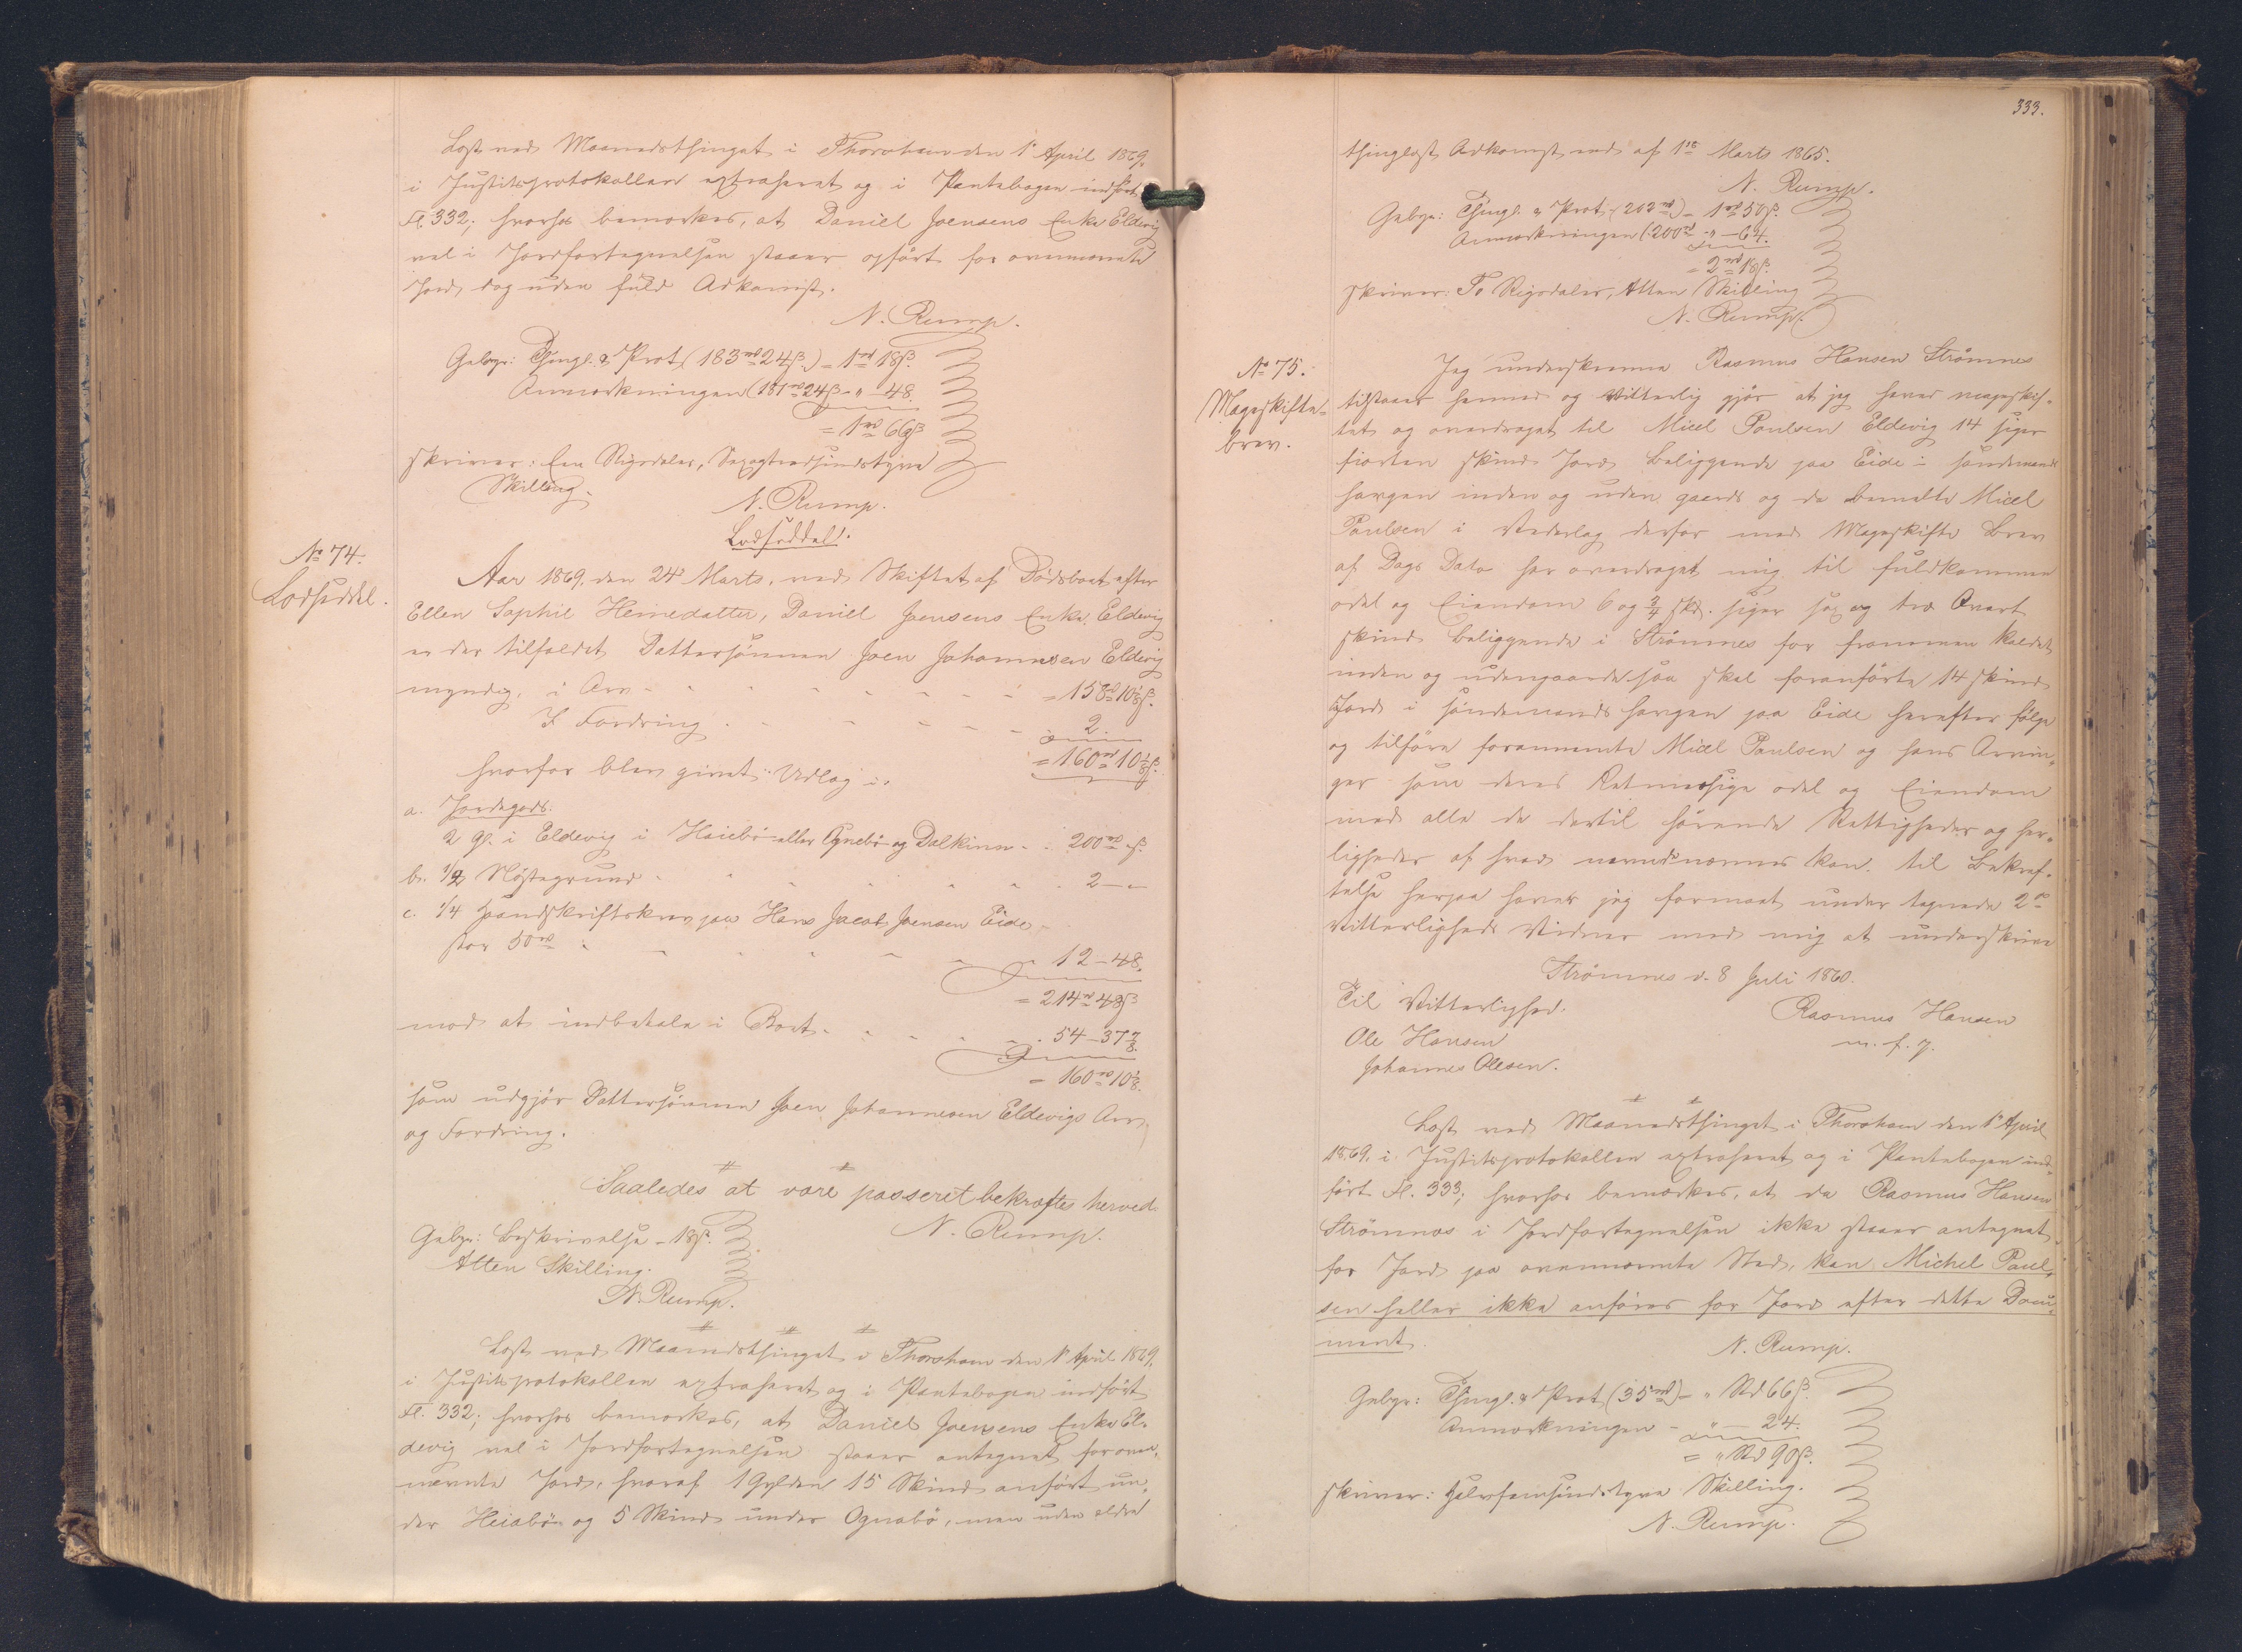 Læst ved Maanedsthinget i Thorshavn den 1' April 1869.
i Justitsprotokollen extraheret og i Pantebogen indført
Fl. 332; hvorhos bemærkes, at Daniel Joensens Enke Eldevig
vel i Jordfortegnelsen staaer opført for ovennævnte
Jord, dog uden fuld Adkomst.
N. Rump.
Gebyr: Thingl. & Prot (183 rd 24 ß.) = 1 rd 18 ß.
Anmærkningen (181 rd 24 ß - " - 48.
= 1 rd 66 ß
skriver: Een Rigsdaler, Sexogtredsindstyve
Skilling.
N. Rump.
No 74.
Lodseddel.
Lodseddel.
Aar 1869. den 24' Marts, ved Skiftet af Dødsboet efter
Ellen Sophie Heinedatter, Daniel Joensens Enke, Eldevig
er der tilfaldet Dattersønnen Joen Johannesen Eldevig
myndig, i Arv - = 158 rd 10 1/8 ß.
I Fordring - 2.
= 160 rd 10 1/8 ß.
hvorfor blev givet Udlæg i:
a. Jordegods:
2 gl. i Eldevig i Haiebø eller Ognebø og Dalkinn - 200 rd " ß.
b. 1/8 Nøstegrund - 2 - "
c. 1/4 Haandskriftskrav paa Hans Jacob Joensen Eide
stor 50 rd - 12 - 48.
= 214 rd 48 ß
mod at indbetale i Boet - 54 - 37 7/8.
= 160 rd 10 1/8.
som udgjør Dattersønnen Joen Johannesen Eldevigs Arv
og Fordring.
Saaledes at være passeret bekræftes herved.
N. Rump.
Gebyr: Beskrivelse - 18 ß.
Atten Skilling.
N. Rump.
Læst ved Maanedsthinget i Thorshavn den 1' April 1869.
i Justitsprotokollen extraheret og i Pantebogen indført
Fl. 332; hvorhos bemærkes, at Daniel Joensens Enke El-
devig vel i Jordfortegnelsen staaer antegnet for oven-
nævnte Jord, hvoraf 1 Gylden 15 Skind anført un-
der Heiabø og 5 Skind under Ognabø, men uden ældre
333.
thinglæst Adkomst end af 1ste Marts 1865.
N. Rump.
Gebyr: Thingl. & Prot (203 rd) - 1 rd 50 ß.
Anmærkningen (200 rd - " - 64.
= 2 rd 18 ß.
skriver: To Rigsdaler, Atten Skilling
N. Rump.
No 75.
Mageskifte-
brev.
Jeg underskrevne Rasmus Hansen Strømnes
tilstaaer herved og vitterlig gjør at jeg haver mageskif-
tet og overdraget til Micel Poulsen Eldevig 14 siger
fiorten skind Jord beliggende paa Eide i søndemands
haugen inden og uden gaards og da bemelte Micel
Poulsen i Vederlag derfor med Mageskifte Brev
af Dags Dato har overdraget mig til fuldkommen
odel og Eiendom 6 og 3/4 skd. siger sex og tre Qvart
skind beliggende i Strømnes for frammen Kaldet
inden og udengaards saa skal foranførte 14 skind
Jord i søndemands haugen paa Eide herefter følge
og tilhøre forannevnte Micel Poulsen og hans Arvin-
ger som deres Retmæsige odel og Eiendom
med alle de dertil hørende Rettigheder og her-
ligheder af hvad nævnd nævnes kan. til Bekræf-
telse herpaa haver jeg formaaet under tegnede 2de
Vitterligheds Vidner med mig at underskrive
Strømnes d. 8 Juli 1860.
Til Vitterlighed.
Rasmus Hansen
m. f. P.
Ole Hansen
Johannes Olesen.
Læst ved Maanedsthinget i Thorshavn den 1' April
1869. i Justitsprotokollen extraheret og i Pantebogen ind-
ført Fl. 333; hvorhos bemærkes, at da Rasmus Hansen
Strømnæs i Jordfortegnelsen ikke staaer antegnet
for Jord paa ovennævnte Sted, kan Michel Poul-
sen heller ikke anføres for Jord efter dette Docu-
ment.
N. Rump.
Gebyr: Thingl. & Prot (35 rd) - " Rd 66 ß.
Anmærkningen - " - 24.
= " Rd 90 ß.
skriver: Halvfemsindstyve Skilling.
N. Rump.